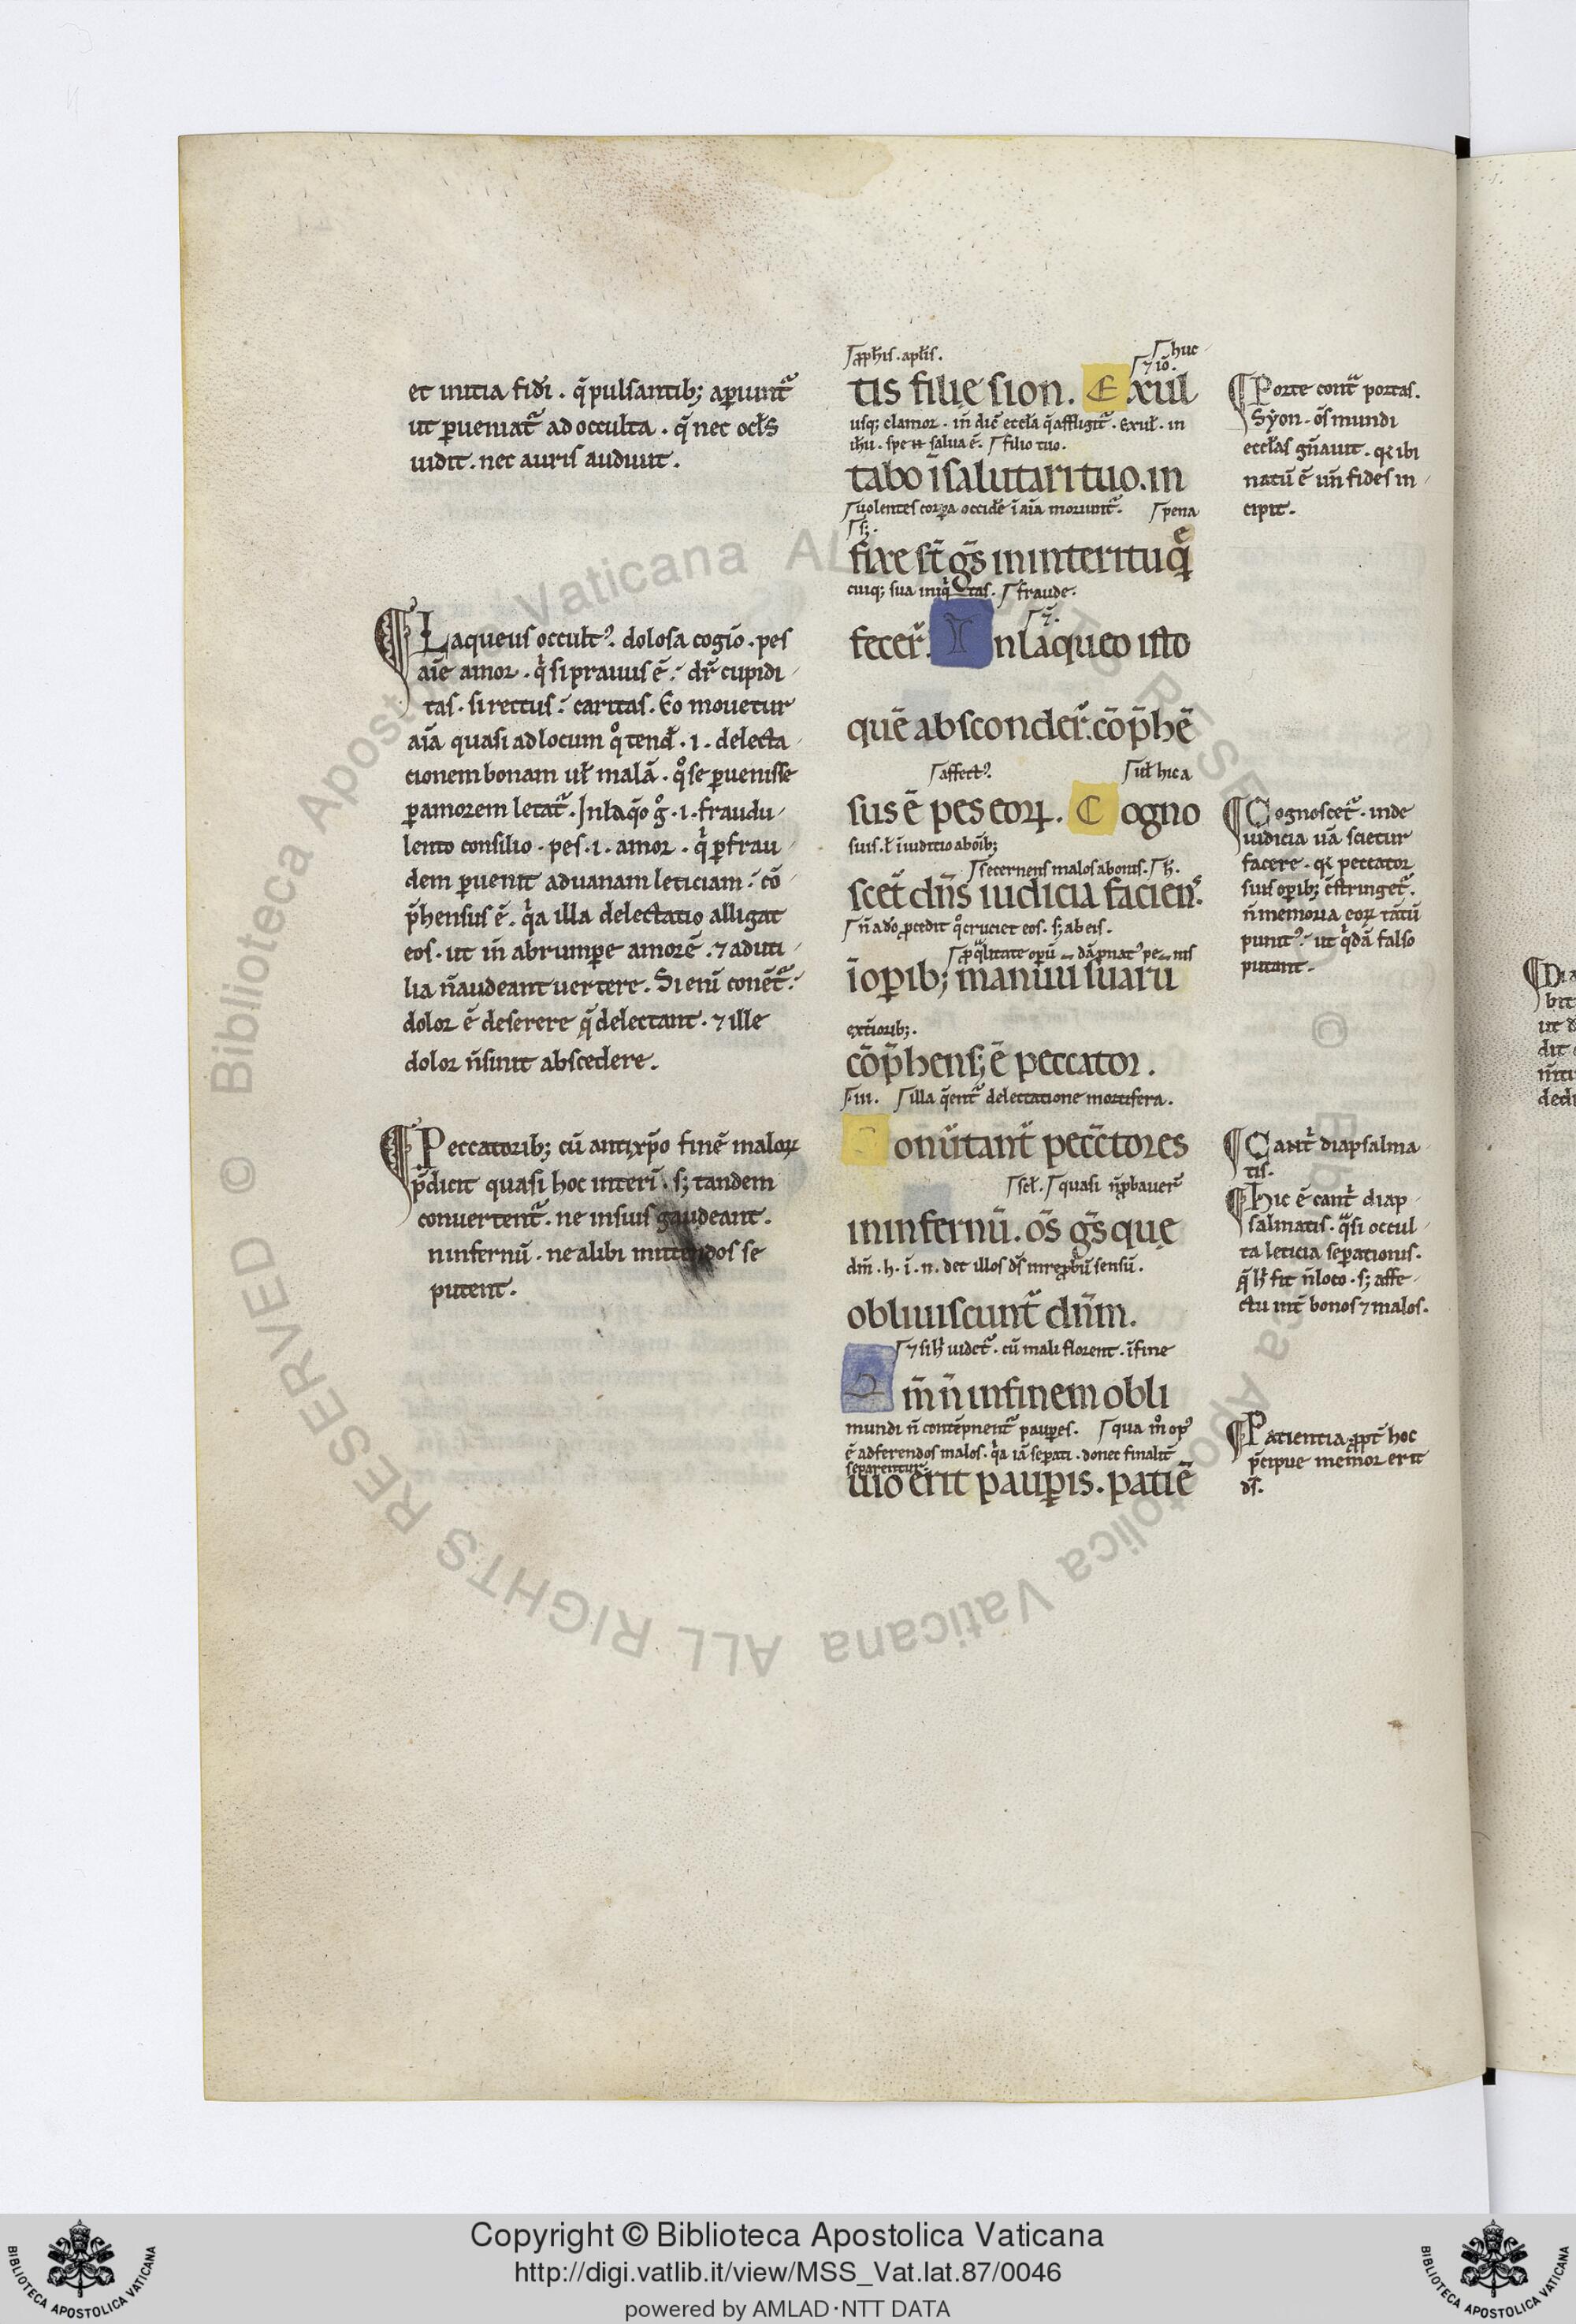 et initia fidei . q̄ pulsantib; aperiunt᷑
ut p̲ueniat᷑ ad occulta . q̄ nec ocl̄s
uidit . nec auris audiuit .
¶ Laqueus occultꝰ . dolosa cogio᷑ . pes
aīe amor . q̇ si prauus ē . dr̄ cupidi
tas . si rectus . caritas . Eo mouetur
aīa quasi ad locum q̊ tend̄ . i . delecta
cionem bonam ul̄ malā . q̊ se puenisse
p amorem letat᷑ . In laq̄o g̊ . i . fraudu
lento consilio . pes . i . amor . q̇ p frau
dem puenit ad uanam leticiam . cō
p̄hensus ē . q̇a illa delectatio alligat
eos . ut n̄ abrumpe amorē . ⁊ ad uti
lia n̄ audeant uertere . Si eni᷑ conēt᷑ .
dolor ē deserere q̄ delectant . ⁊ ille
dolor n̄ sinit abscedere .
¶ Peccatorib; cū antixp̄o finē maloꝝ
p̄dicit quasi hoc interi᷑ . s; tandem
conuertent᷑ . ne in suis gaudeant .
n infernū . ne alibi mittendos se
putent .
p̄ph̄is . apl̄is . huc
⁊ iō .
tis filię sion . Exul
usq; clamor . n̄ dic̄ eccl̄a q̄ affligit᷑ . Exul̄ . in
ih̄u . spe salua ē . filio tuo .
tabo ī salutari tuo . in
uolentes corpa occide᷑ ī aīa moriunt᷑ . pena
s; .
fixe st̄ gs̄ in interitu quē
cuiq; sua iniq̇tas . fraude .
fecer᷑ . In laqueo isto
quē absconder᷑ . cōp̄hē
affectꝰ . ul̄ hic a
sus ē pes eoꝝ . Cogno
suis . ł ī iudicio ab oīb;
secernens malos a bonis . h̄ .
scet᷑ dn̄s iudicia facienˢ .
n̄ a dō p̄cedit q̊ cruciet eos . s; ab eis .
ī opib; manuū suarū
exterioib; .
cōp̄hens; ē peccator .
in . illa q̄ent᷑ delectatione mortifera .
onūtant᷑ pecc̄tores
scl̄ . quasi n̄ p̄bauer᷑
in infernū . oms̄ gs̄ quę
dm̄ . h . i . n . det illos ds̄ in repbū sensū .
obliuiscunt᷑ dn̄m .
⁊ si h̄ uidet᷑ . cū mali florent . ī fine
m̄ n̄ in finem obli
mundi n̄ contēpnent᷑ paupes . qua m̊ opꝰ
ē ad ferendos malos . q̇a iā sepati . donec finalit᷑
separentur .
uio erit paupis . patiē
¶ Porte cont᷑ portas .
Syon . oms̄ mundi
eccl̄as gn̄auit . qꝛ ibi
natū ē un̄ fides in
cipit .
¶ Cognoscet᷑ . inde
iudicia ūa scietur
facere . qꝛ peccator
suis opib; c̄stringet᷑ .
n̄ memoria eoꝝ tātū
punitꝰ . ut q̇dā falso
putant .
¶ Cant᷑ diapsalma
tis .
¶ Hic ē cant᷑ diap
salmatis . q̄si occul
ta leticia sepationis .
q̄ h̄ fit n̄ loco . s; affe
ctu int᷑ bonos ⁊ malos .
¶ Patientia p̄pt᷑ hoc
p̄cipue memor erit
ds̄ .
Copyright © Biblioteca Apostolica Vaticana
http://digi.vatlib.it/view/MSS_Vat.lat.87/0046
powered by AMLAD·NTT DATA
BIBLIOTECA APOSTOLICA VATICANA
BIBLIOTECA APOSTOLICA VATICANA
© Biblioteca Apostolica Vaticana ALL RIGHTS RESERVED